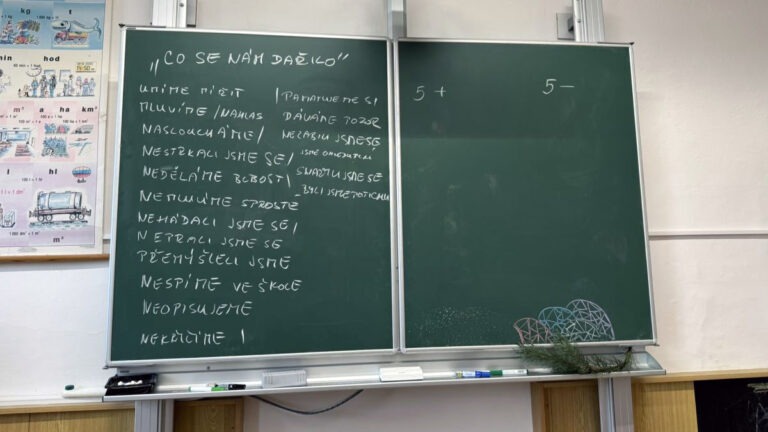 kg
t
min
hod
m²
a
ha
km²
l
hl
m³
„CO SE NÁM DAŘILO"
UMÍME MÍŘIT
MLUVÍME / NAHLAS
NASLOUCHÁME /
NESTRKALI JSME SE /
NEDĚLÁME BLBOSTI
NEMLUVÍME SPROSTĚ
NEHÁDALI JSME SE /
NEPRALI JSME SE
PŘEMÝŠLELI JSME
NESPÍME VE ŠKOLE
NEOPISUJEME
NEKŘIČÍME !
/ PAMATUJEME SI
DÁVÁME POZOR
NEZABILI JSME SE
JSME OHLEDUPLNÍ
SNAŽILI JSME SE
- BYLI JSME POTICHU
5 +
5 -